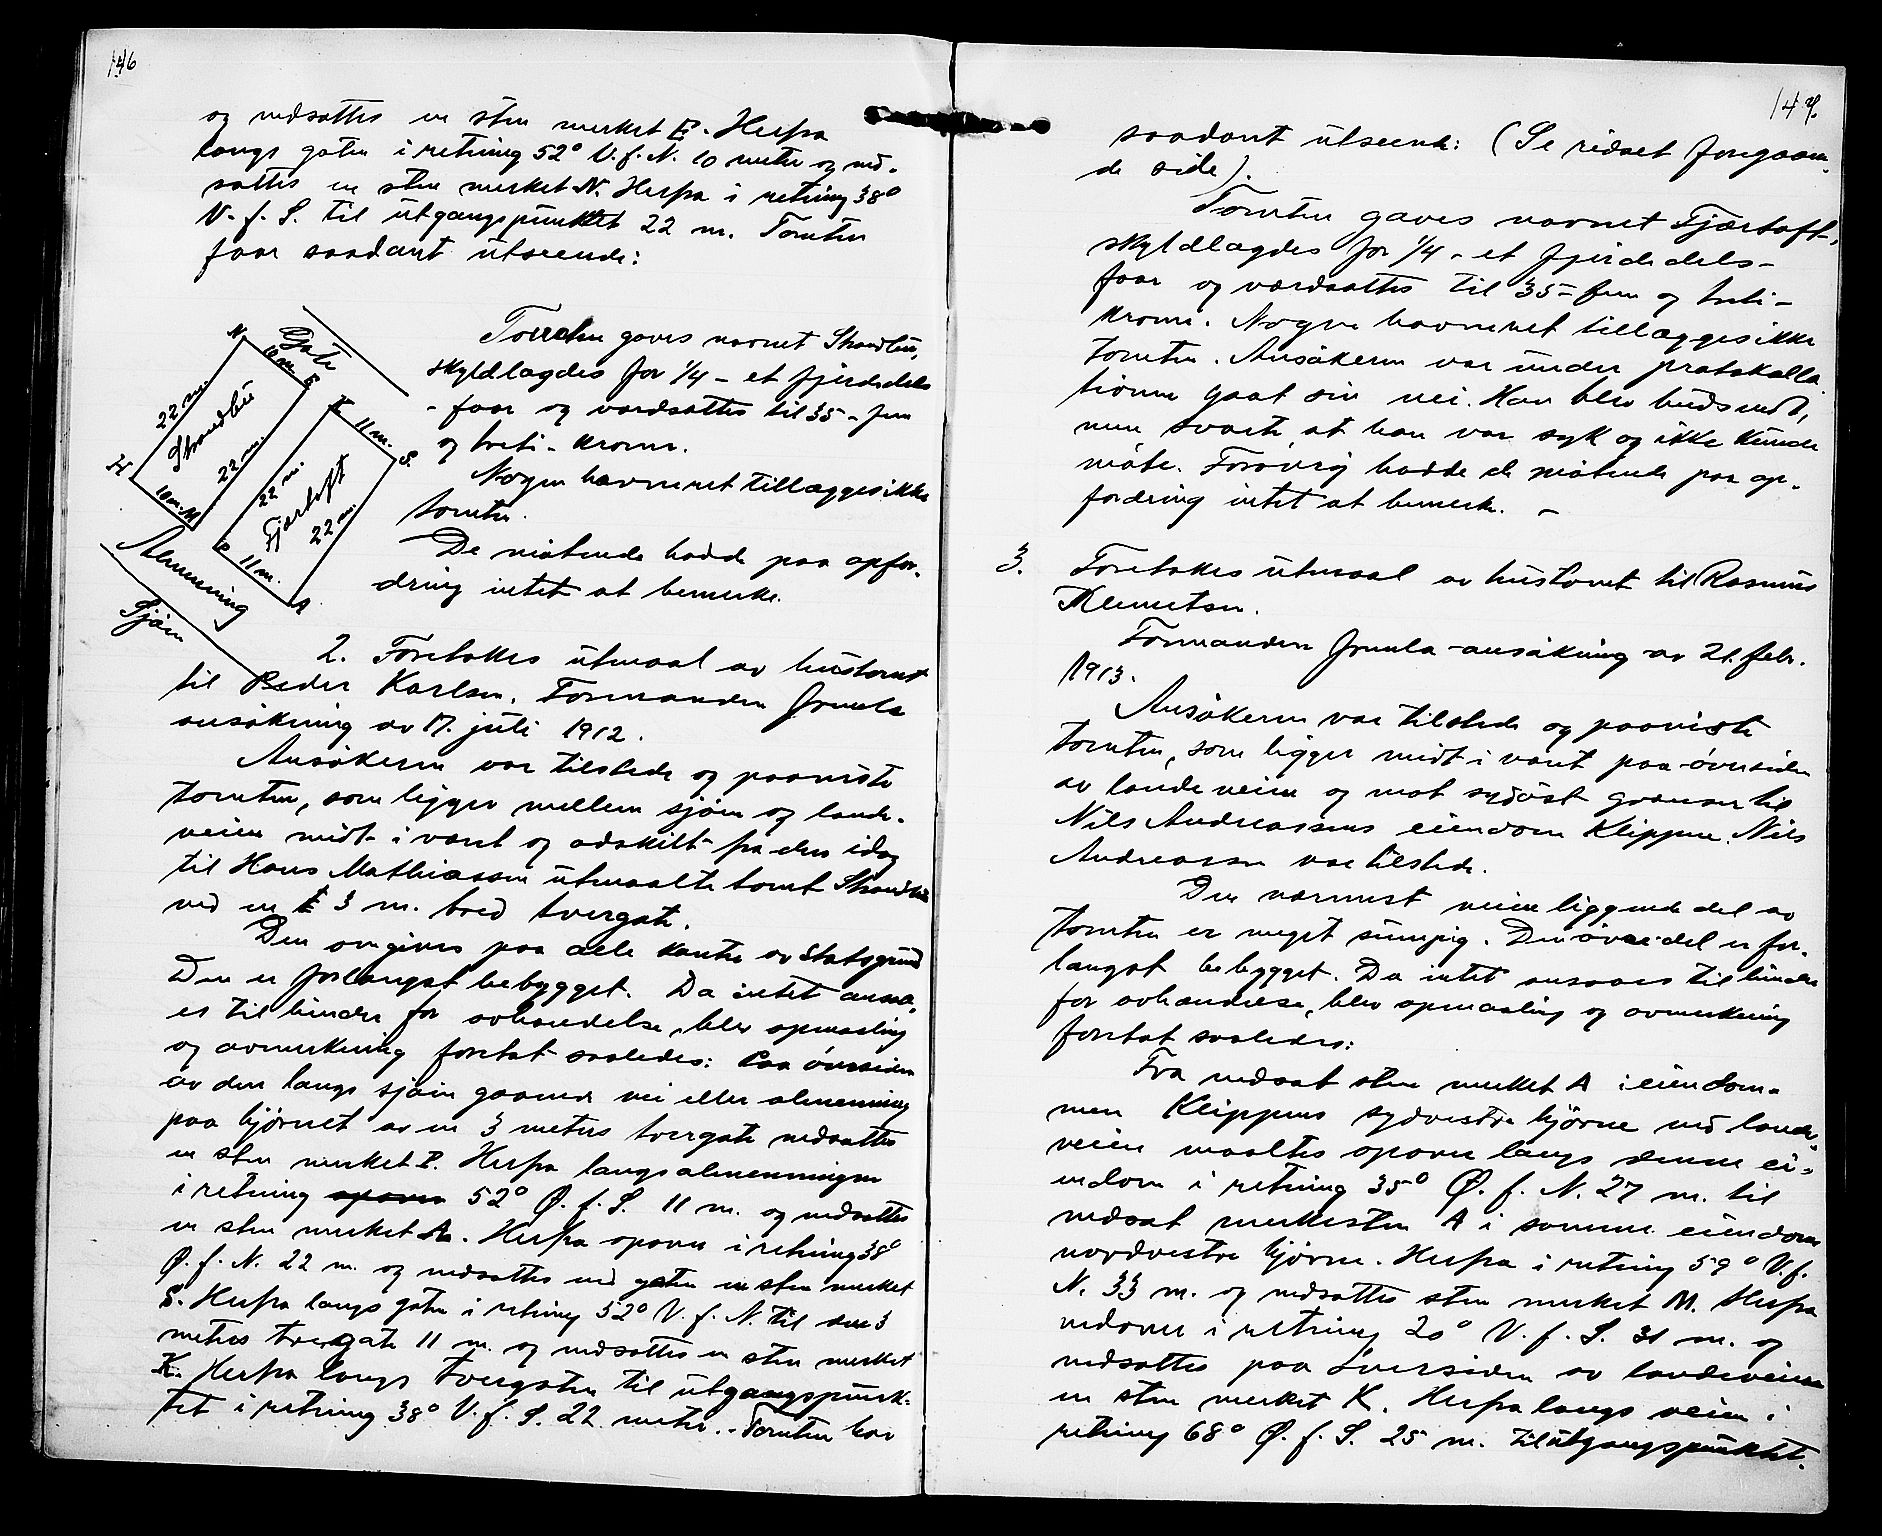 146
og nedsattes en sten merket E. Herfra
langs gaten i retning 52° V.f.N. 10 meter og ned-
sattes en sten merket N. Herfra i retning 38°
V.f.S. til utgangspunktet 22 m. Tomten
faar saadant utseende:
Gate
N. 10 m. E
K 11 m. S.
22 m.
Strandbu
22 m.
H 10 m. M
22 m.
Fjærtoft
22 m.
P 11 m. A
Almenning
Sjøen
Tomten gaves navnet Strandbu,
skyldlagdes for 1/4 - et fjerdedels
- faar og værdsattes til 35 - fem
og treti - kroner.
Nogen havneret tillægges ikke
tomten.
De møtende hadde paa opfor-
dring intet at bemerke.
2. Foretokes utmaal av hustomt
til Peder Karlsen. Formanden fremla
ansøkning av 17. juli 1912.
Ansøkeren var tilstede og paaviste
tomten, som ligger mellem sjøen og lande-
veien midt i været og adskilt fra den idag
til Hans Mathiassen utmaalte tomt Strandbu
ved en 3 m. bred tvergate.
Den omgives paa alle kanter av Statsgrund
Den er forlængst bebygget. Da intet ansaa-
es til hinder for avhændelse, blev opmaaling
og avmerkning foretat saaledes: Paa øversiden
av den langs sjøen gaaende vei eller almenning
paa hjørnet av en 3 meters tvergate nedsattes
en sten merket P. Herfra langs almenningen
i retning opover 52° Ø.f.S. 11 m. og nedsattes
en sten merket A. Herfra opover i retning 38°
Ø.f.N. 22 m. og nedsattes ved gaten en sten merket
S. Herfra langs gaten i retning 52° V.f.N. til den 3
meters tvergate 11 m. og nedsattes en sten merket
K. Herfra langs tvergaten til utgangspunk-
tet i retning 38° V.f.S. 22 meter. - Tomten har
147.
saadant utseende: (Se ridset foregaaen-
de side).
Tomten gaves navnet Fjærtoft,
skyldlagdes for 1/4 - et fjerdedels -
faar og værdsattes til 35 - fem og treti -
kroner. Nogen havneret tillægges ikke
tomten. Ansøkeren var under protokolla
tionen gaat sin vei. Han blev budsendt,
men svarte at han var syk og ikke kunde
møte. Forøvrig hadde de møtende paa op-
fordring intet at bemerke. -
3. Foretokes utmaal av hustomt til Rasmus
Klemetsen.
Formanden fremla ansøkning av 21. febr.
1913.
Ansøkeren var tilstede og paaviste
tomten, som ligger midt i været paa øversiden
av landeveien og mot sydøst grænser til
Nils Andreassens eiendom Klippen. Nils
Andreassen var tilstede.
Den nærmest veien liggende del av
tomten er meget sumpig. Den øvre del er for-
længst bebygget. Da intet ansaaes til hinder
for avhændelse, blev opmaaling og avmerkning
foretat saaledes:
Fra nedsat sten merket A i eiendom-
men Klippens sydvestre hjørne ved lande-
veien maaltes opover langs denne ei-
endom i retning 35° Ø.f.N. 27 m. til
nedsat merkesten A i samme eiendoms
nordvestre hjørne. Herfra i retning 59° V.f.
N. 33 m. og nedsattes sten merket M. Herfra
nedover i retning 20° V.f.S. 31 m. og
nedsattes paa øversiden av landeveien
en sten merket K. Herfra langs veien i
retning 68° Ø.f.S. 25 m. til utgangspunktet.